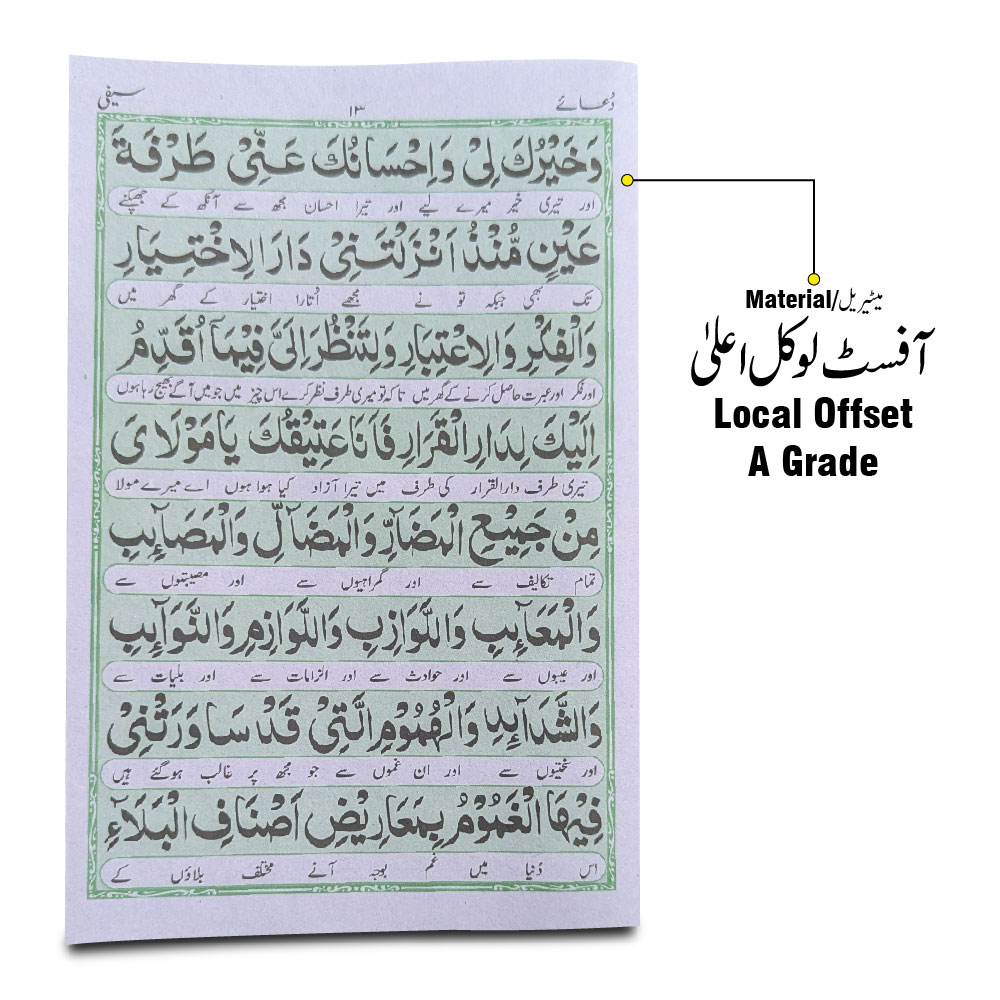 دُعائے ۱۳ سیفی
وَخَيْرُكَ لِیْ وَاِحْسَانُكَ عَنِّیْ طَرْفَةَ
اور تیری خیر میرے لیے اور تیرا احسان مجھ سے آنکھ کے جھپکنے
عَيْنٍ مُّنْذُ اَنْزَلْتَنِیْ دَارَ الِاخْتِيَارِ
تک بھی جبکہ تو نے مجھے اُتارا اختیار کے گھر میں
وَالْفِكْرِ وَالِاعْتِبَارِ وَلِتَنْظُرَ اِلَیَّ فِيْمَآ اُقَدِّمُ
اور فکر اور عبرت حاصل کرنے کے گھر میں تاکہ تو میری طرف نظر کرے اس چیز میں جو میں آگے بھیج رہا ہوں
اِلَيْكَ لِدَارِ الْقَرَارِ فَاَنَا عَتِيْقُكَ يَا مَوْلَایَ
تیری طرف دارالقرار کی طرف میں تیرا آزاد کیا ہوا ہوں اے میرے مولا
مِنْ جَمِيْعِ الْمَضَآرِّ وَالْمَضَآلِّ وَالْمَصَآئِبِ
تمام تکالیف سے اور گمراہیوں سے اور مصیبتوں سے
وَالْمَعَآئِبِ وَاللَّوَازِبِ وَاللَّوَازِمِ وَالنَّوَآئِبِ
اور عیبوں سے اور حوادث سے اور الزامات سے اور بلیات سے
وَالشَّدَآئِدِ وَالْهُمُوْمِ الَّتِیْ قَدْ سَاوَرَتْنِیْ
اور سختیوں سے اور ان غموں سے جو مجھ پر غالب ہوگئے ہیں
فِيْهَا الْغُمُوْمُ بِمَعَارِيْضِ اَصْنَافِ الْبَلَآءِ
اس دُنیا میں غم بوجہ آنے مختلف بلاؤں کے
Material/میٹیریل
آفسٹ لوکل اعلیٰ
Local Offset
A Grade